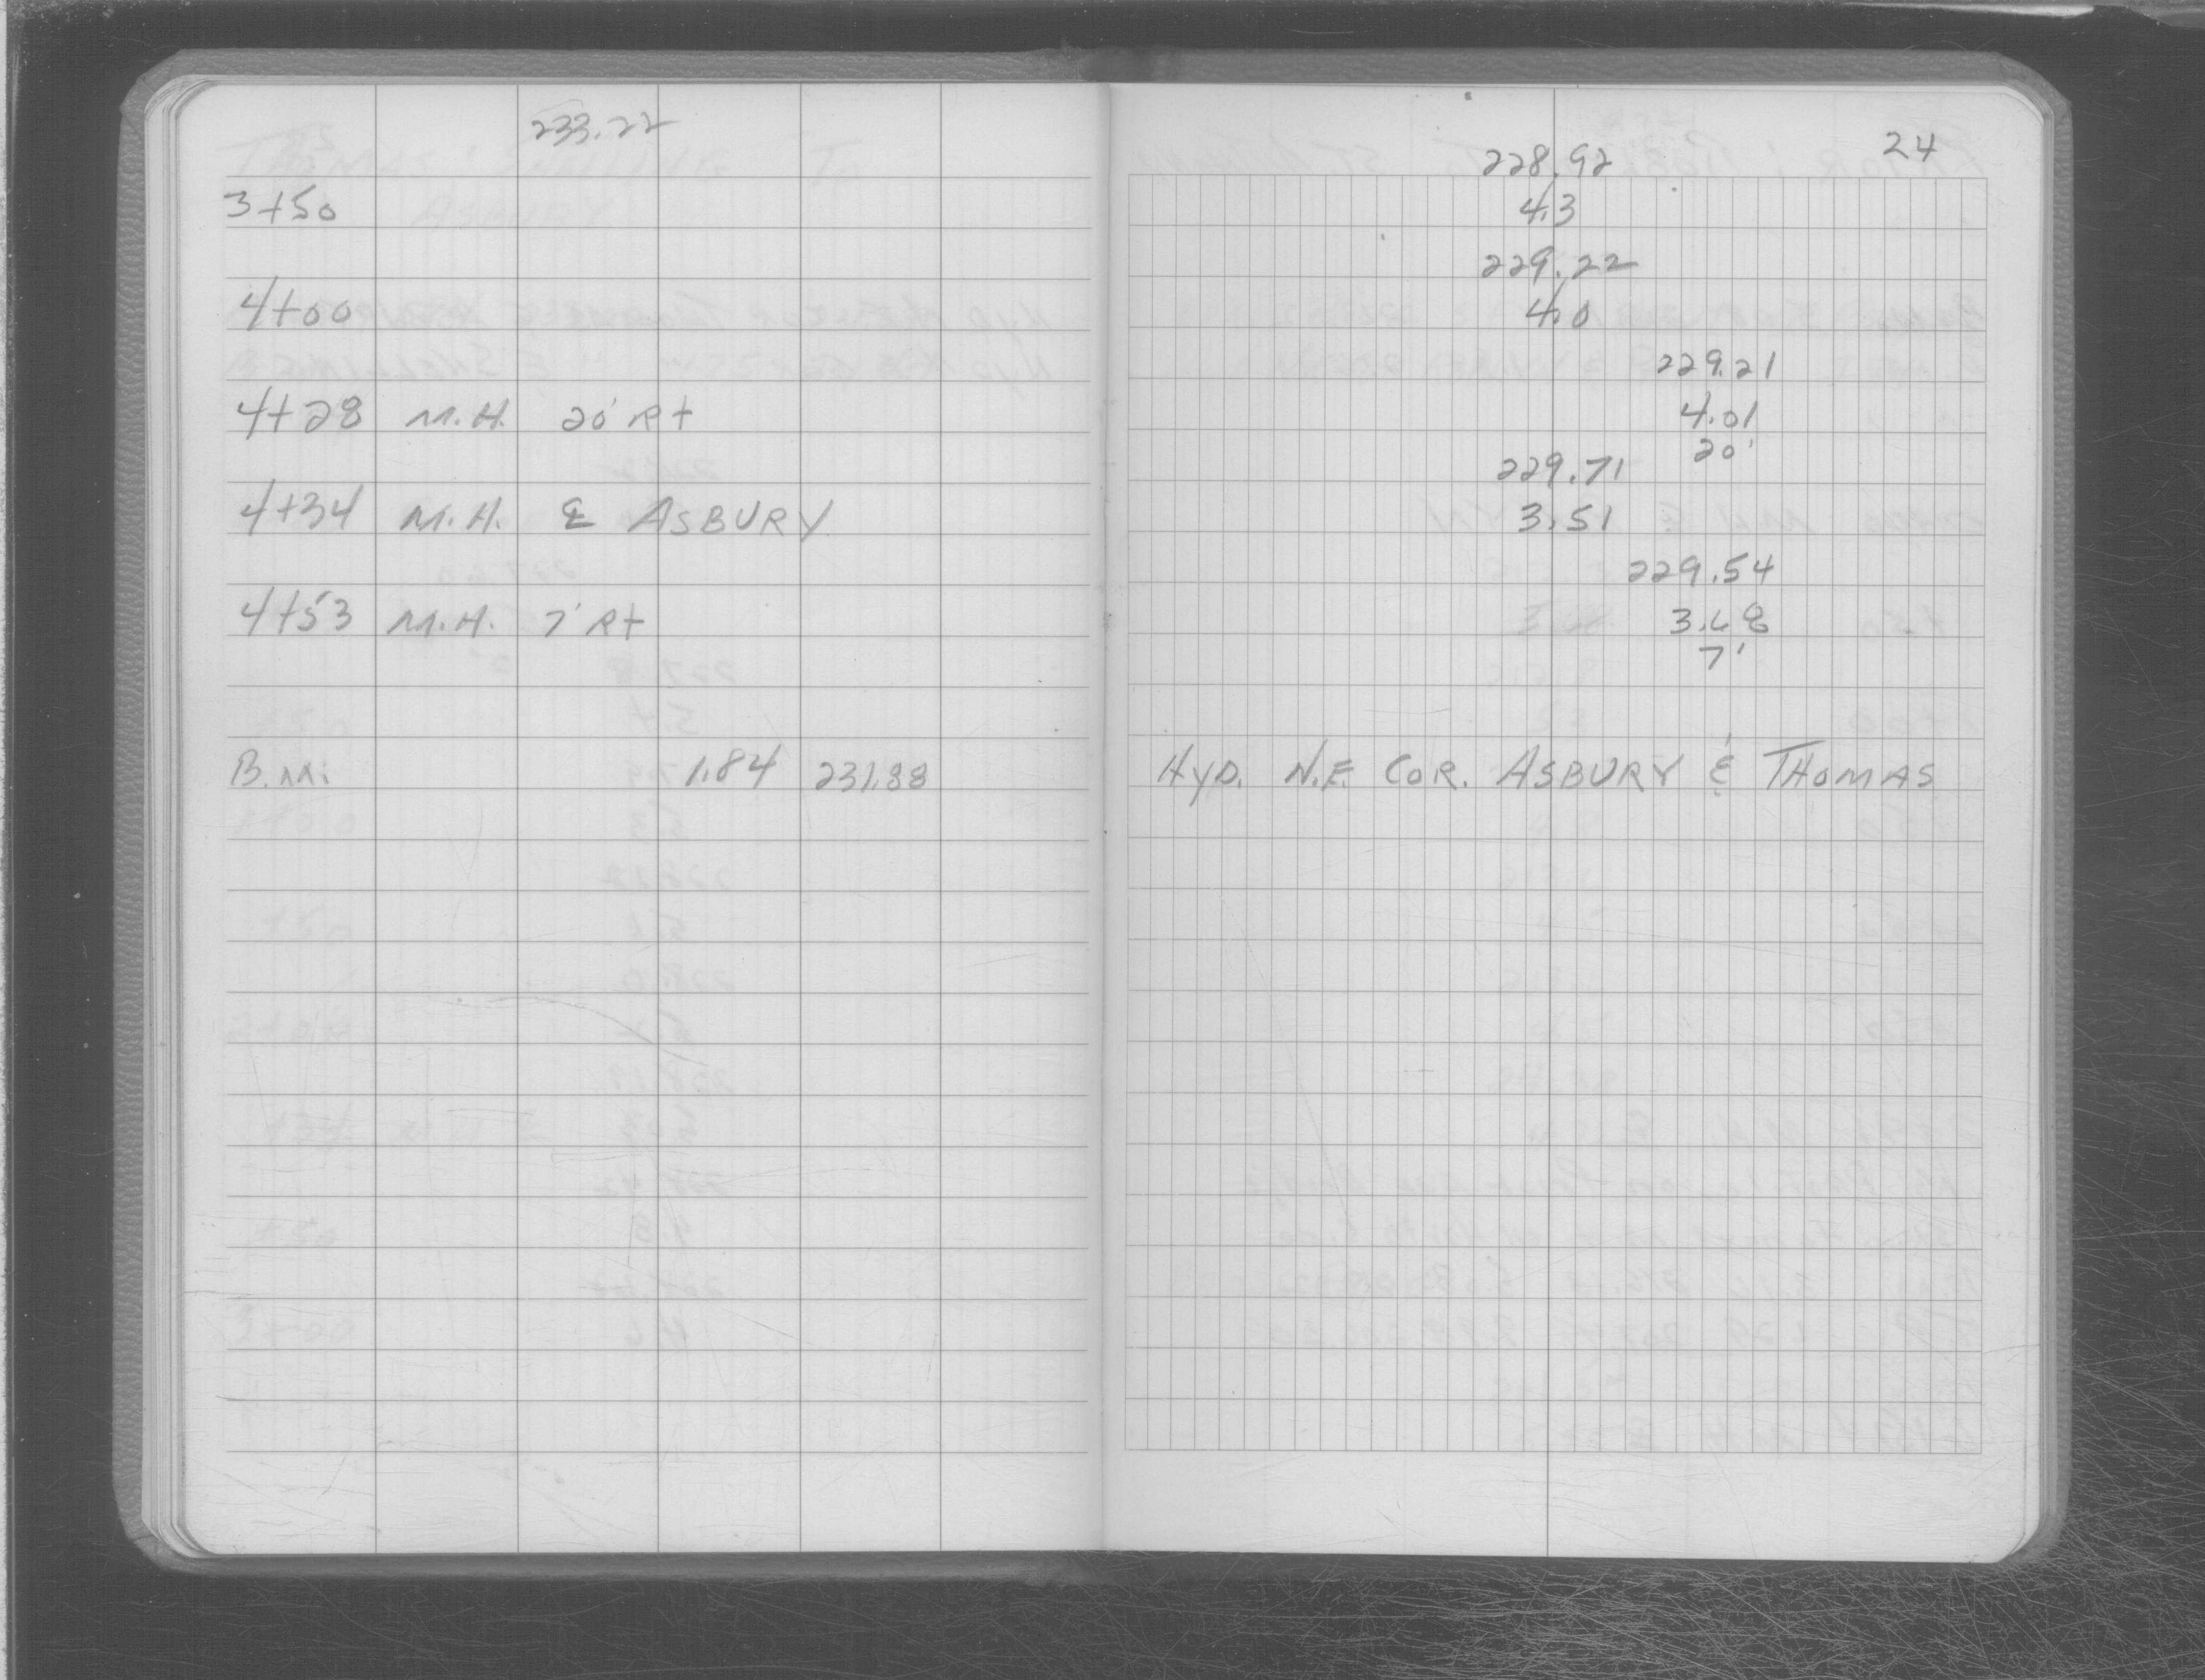 233.22
3+50
4+00
4+28 M.H. 20' Rt
4+34 M.H. ℄ ASBURY
4+53 M.H. 7' Rt
B.M. 1.84 231.38
24
228.92
4.3
229.22
4.0
229.21
4.01
20'
229.71
3.51
229.54
3.68
7'
HYD. N.E. COR. ASBURY & THOMAS